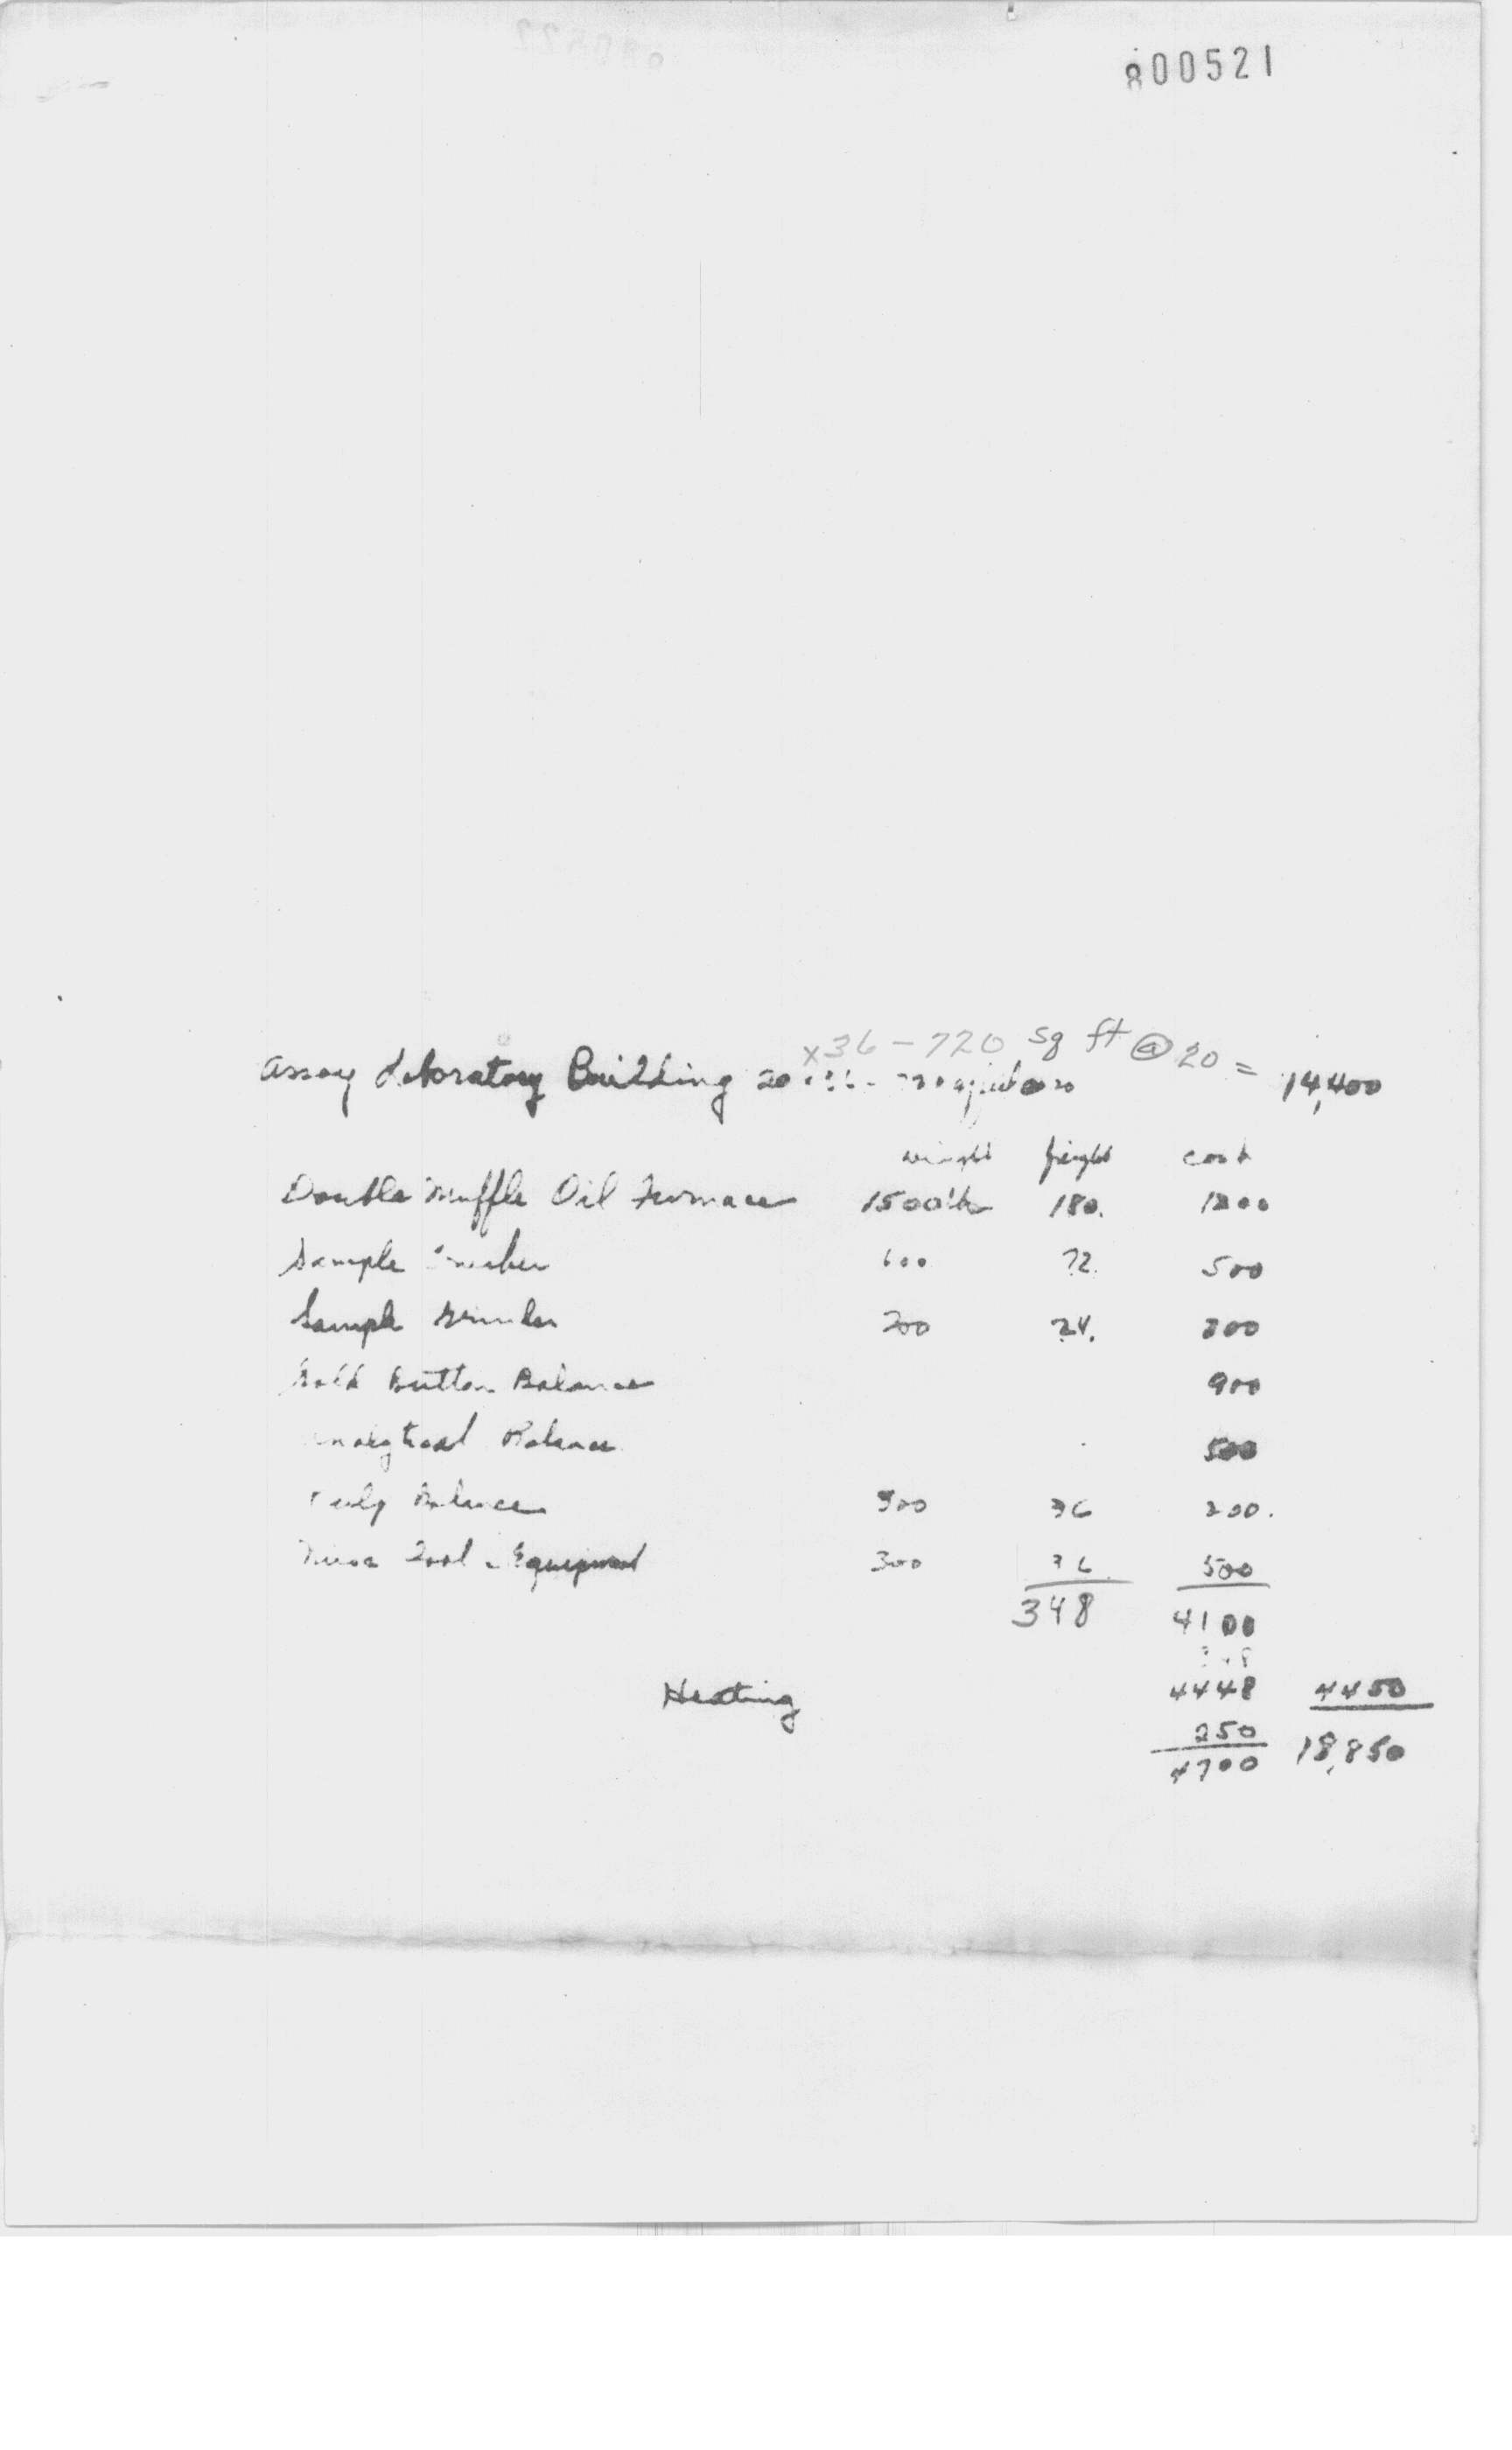 800521
x36 - 720 sq ft @ 20 =
Assay Laboratory Building 20 14,400
weight freight cost
Double Muffle Oil Furnace 1500 lb 180. 1200
Sample Crusher 600 72. 500
Sample Grinder 200 24. 300
Gold Button Balance 900
Analytical Balance 500
Pulp Balance 300 36 200.
Misc Tool - Equipment 300 36. 500
348 4100
348
Heating 4448 4450
250
4700 18,850